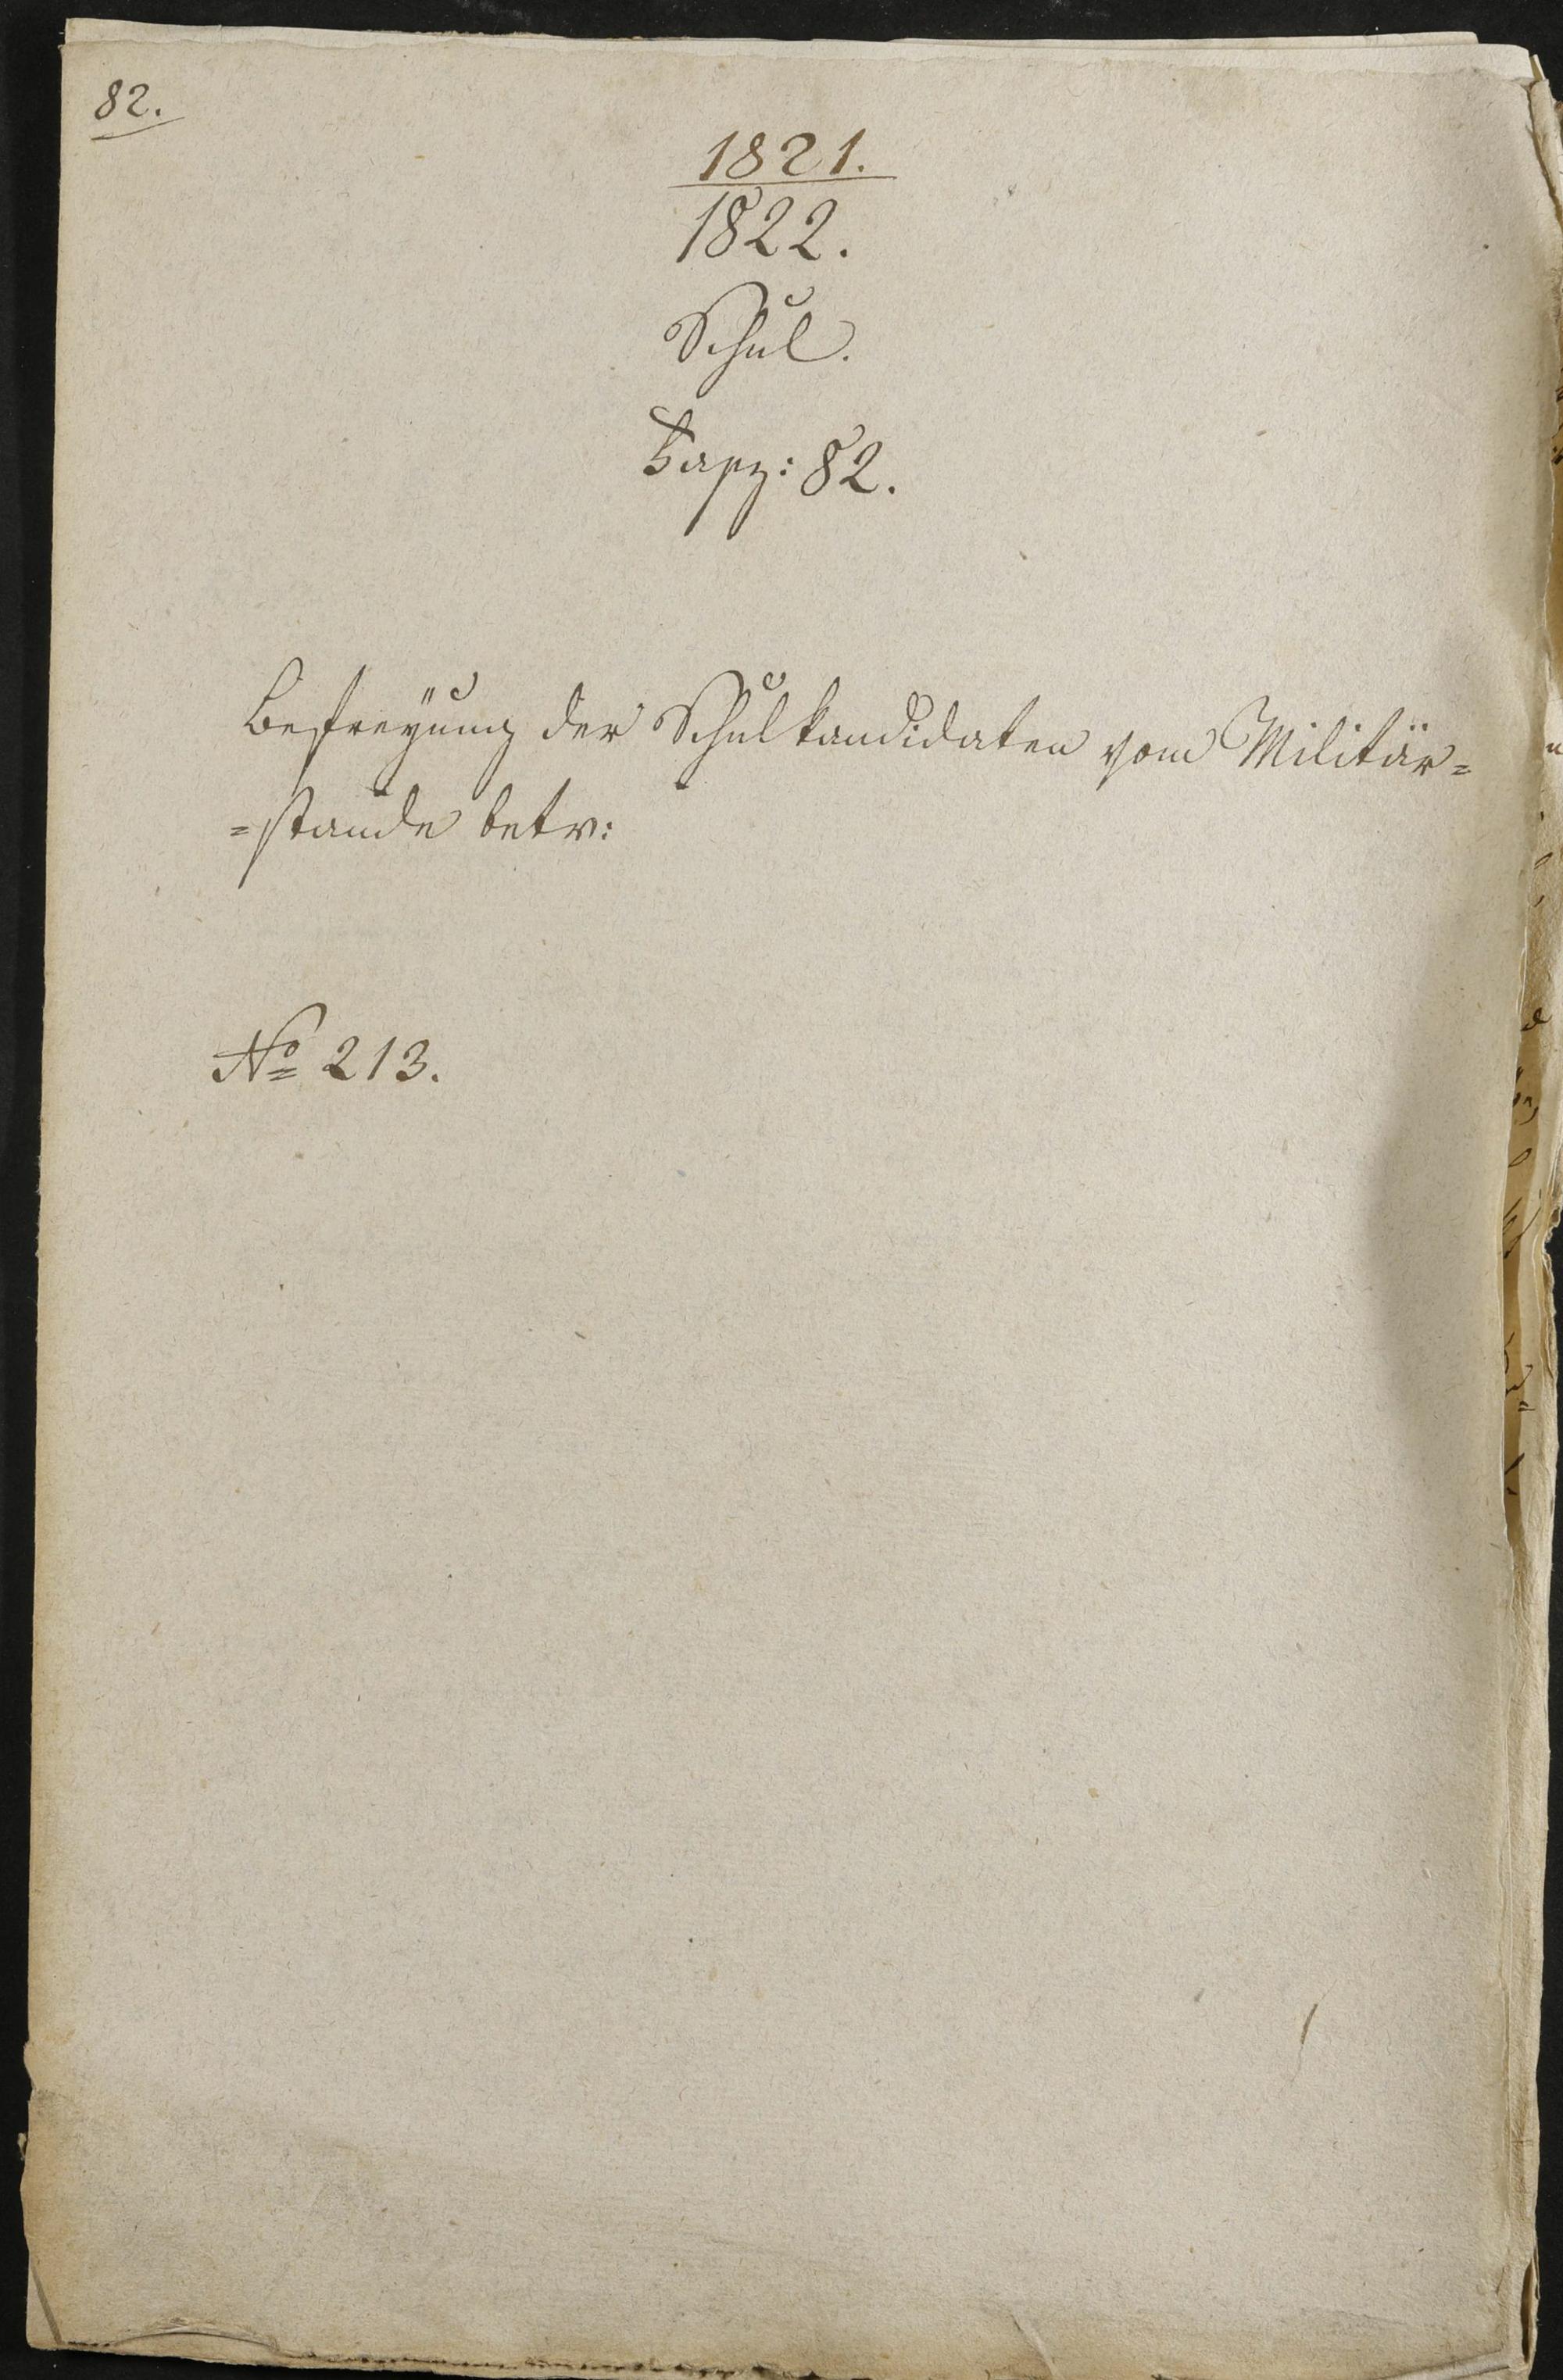 82.
1821.
1822.
Schul.
Fasz: 82.
Befreyung der Schulkandidaten vom Militär=
=stande betr:
No 213.